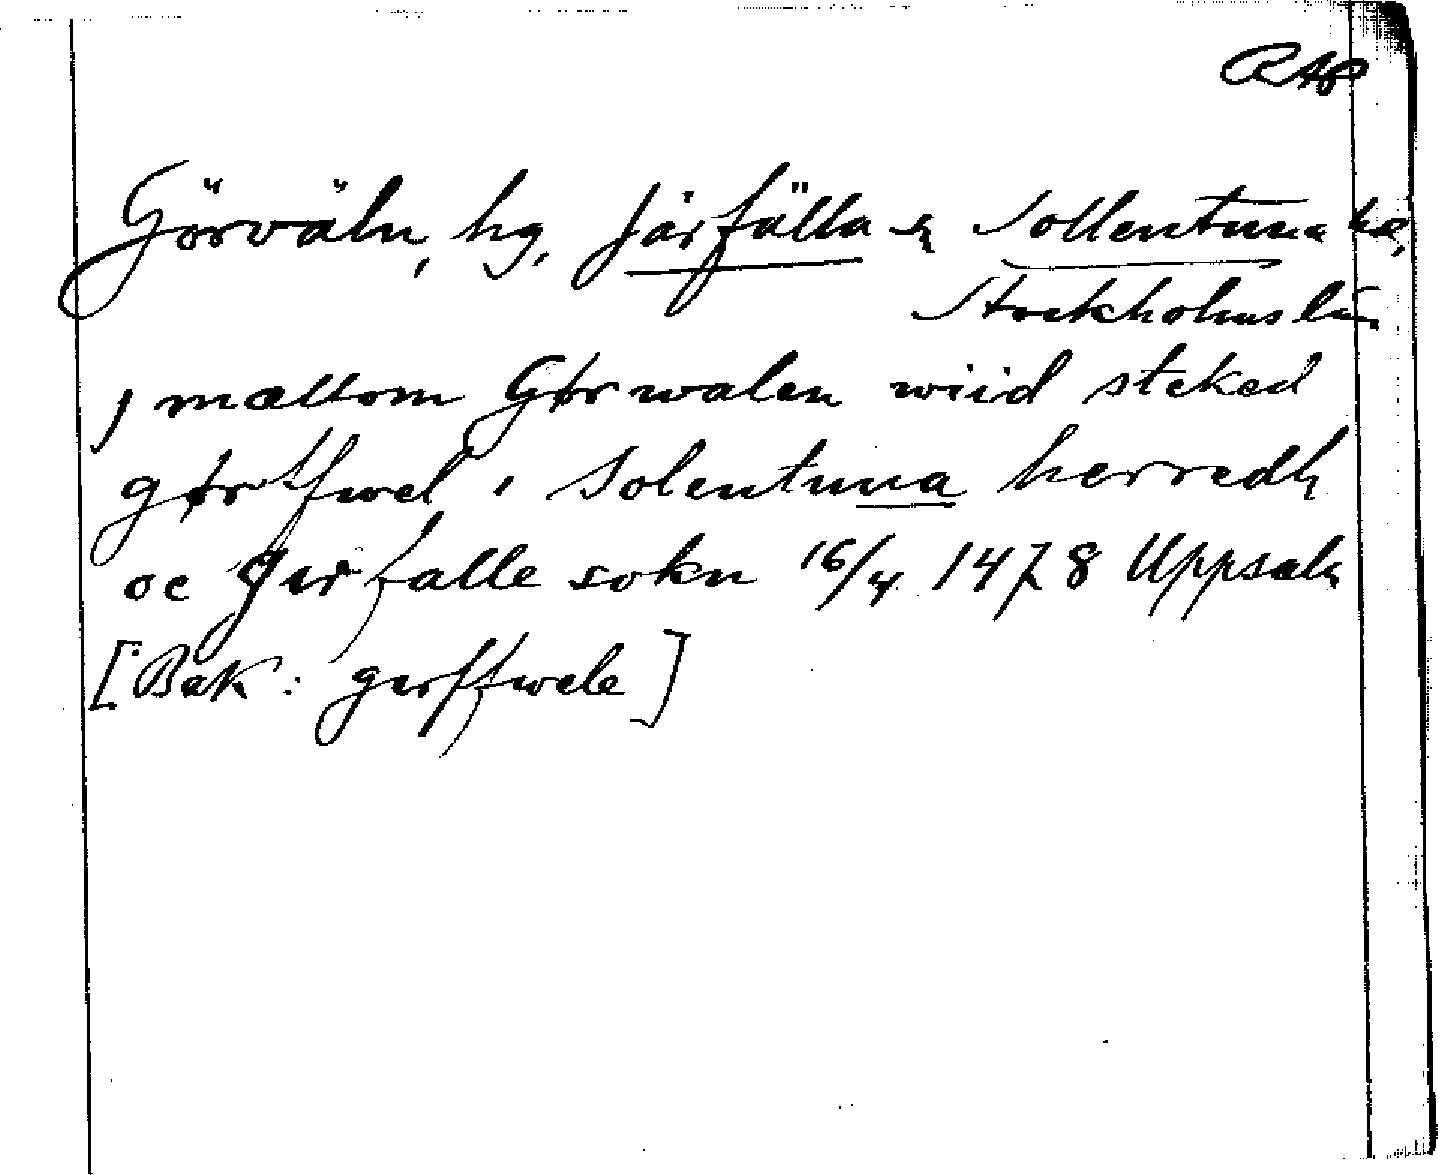 RAP
Görväln, hg, Järfälla sn Sollentuna hd,
Stockholms län
J mællom Gørwalen wiid steked
gørffwel i Solentuna herredh
oc Jerfalle sokn 16/4 1478 Uppsala
[Bak: gerffwele]